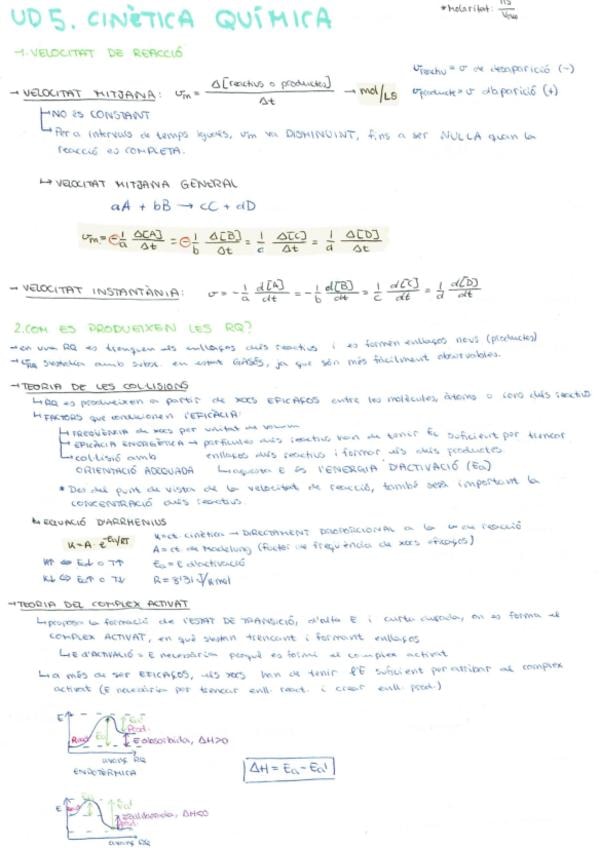 UD 5. CINÈTICA QUÍMICA
*Molaritat: ns/Vdió
1. VELOCITAT DE REACCIÓ
→ VELOCITAT MITJANA: vm = Δ[reactius o productes]/Δt → mol/L·s
vreactiu = v de desaparició (-)
vproducte = v d'aparició (+)
NO ÉS CONSTANT
Per a intervals de temps iguals, vm va DISMINUINT, fins a ser NUL·LA quan la
reacció és COMPLETA.
↳ VELOCITAT MITJANA GENERAL
aA + bB → cC + dD
vm = -1/a Δ[A]/Δt = -1/b Δ[B]/Δt = 1/c Δ[C]/Δt = 1/d Δ[D]/Δt
→ VELOCITAT INSTANTÀNIA: v = -1/a d[A]/dt = -1/b d[B]/dt = 1/c d[C]/dt = 1/d d[D]/dt
2. COM ES PRODUEIXEN LES RQ?
→ en una RQ es trenquen els enllaços dels reactius i es formen enllaços nous (productes)
amb subst. en estat GASÓS, ja que són més fàcilment observables.
→ TEORIA DE LES COL·LISIONS
↳ RQ es produeixen a partir de XOCS EFICAÇOS entre les molècules, àtoms o ions dels reactius
↳ FACTORS que condicionen l'EFICÀCIA:
FREQÜÈNCIA de xocs per unitat de volum
EFICÀCIA ENERGÈTICA → partícules dels reactius han de tenir Ec suficient per trencar
enllaços dels reactius i formar els dels productes.
col·lisió amb
ORIENTACIÓ ADEQUADA
↳ aquesta E és l'ENERGIA D'ACTIVACIÓ (Ea)
* Des del punt de vista de la velocitat de reacció, també serà important la
CONCENTRACIÓ dels reactius.
↳ EQUACIÓ D'ARRHENIUS
K = A · e^-Ea/RT
K = ct. cinètica → DIRECTAMENT PROPORCIONAL a la v de reacció
A = ct. de Madelung (factor de freqüència de xocs eficaços)
K↑ ⇔ Ea↓ o T↑
Ea = E d'activació
K↓ ⇔ Ea↑ o T↓
R = 8'31 J/K·mol
→ TEORIA DEL COMPLEX ACTIVAT
↳ proposa la formació de l'ESTAT DE TRANSICIÓ, d'alta E i curta durada, on es forma el
COMPLEX ACTIVAT, en què s'estan trencant i formant enllaços
↳ E d'ACTIVACIÓ = E necessària perquè es formi el complex activat
↳ a més de ser EFICAÇOS, els xocs han de tenir l'E suficient per arribar al complex
activat (E necessària per trencar enll. react. i crear enll. prod.)
E
React
Ea
Ea'
Prod.
E absorbida, ΔH>0
avanç RQ
ENDOTÈRMICA
ΔH = Ea - Ea'
E
Ea'
ΔH<0
avanç RQ